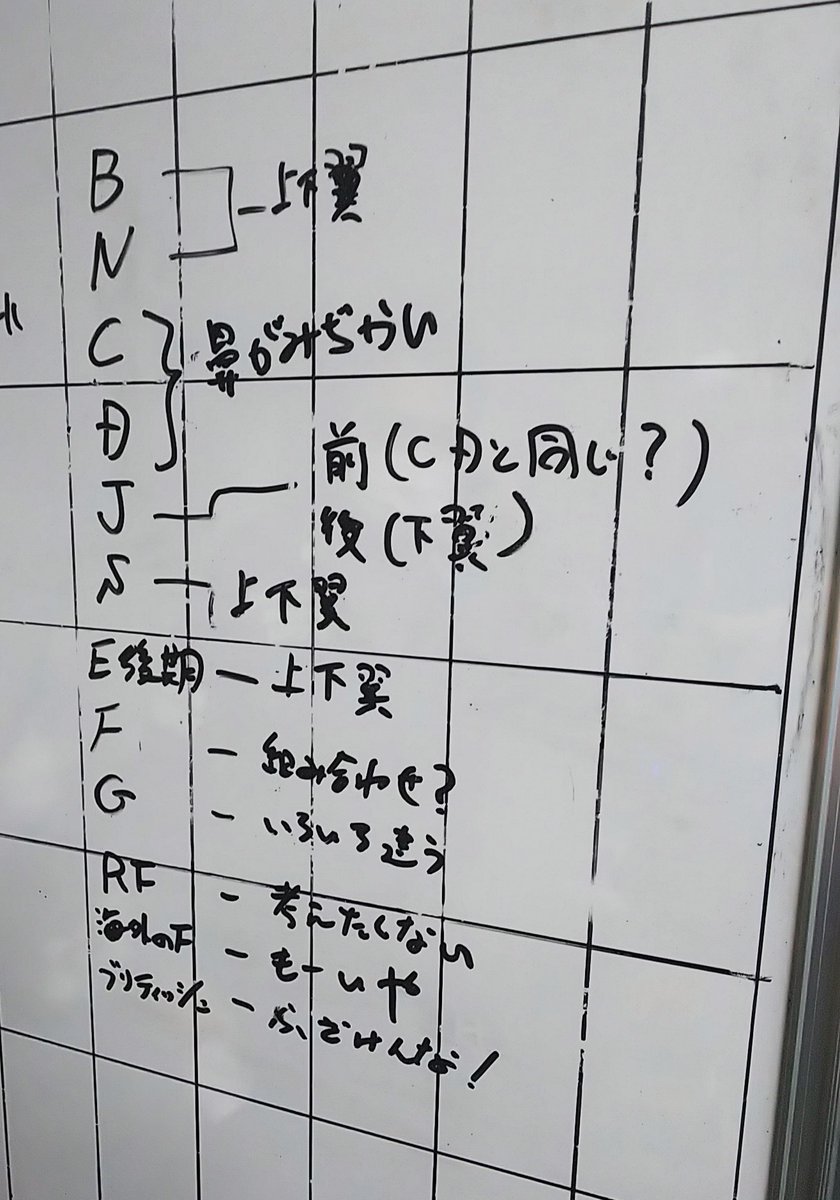 B
N
上下翼
C
Đ
鼻がみぢかい
J
前(CĐと同じ?)
後(下翼)
S
上下翼
E後期 ー 上下翼
F ー 組み合わせ?
G ー いろいろ違う
RF ー 考えたくない
海外のF ー もーいや
ブリティッシュ ー ふざけんな!